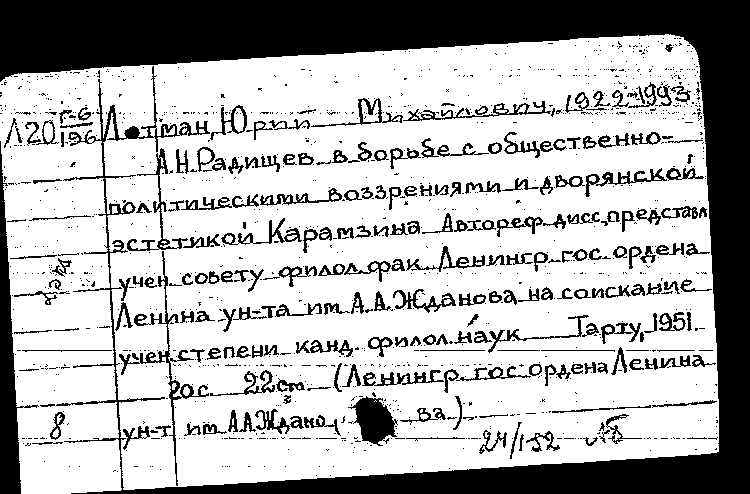 Л20 Г-6/196 Лотман, Юрий Михайлович, 1922-1993
А.Н. Радищев в борьбе с общественно-
политическими воззрениями и дворянской
эстетикой Карамзина Автореф. дисс, представл
учен. совету филол. фак. Ленингр. гос. ордена
Ленина ун-та им А.А. Жданова на соискание
учен. степени канд. филол. наук Тарту, 1951.
20 с 22 см. (Ленингр. гос. ордена Ленина
8 ун-т им А.А. Ждано ва).
24/152 №8